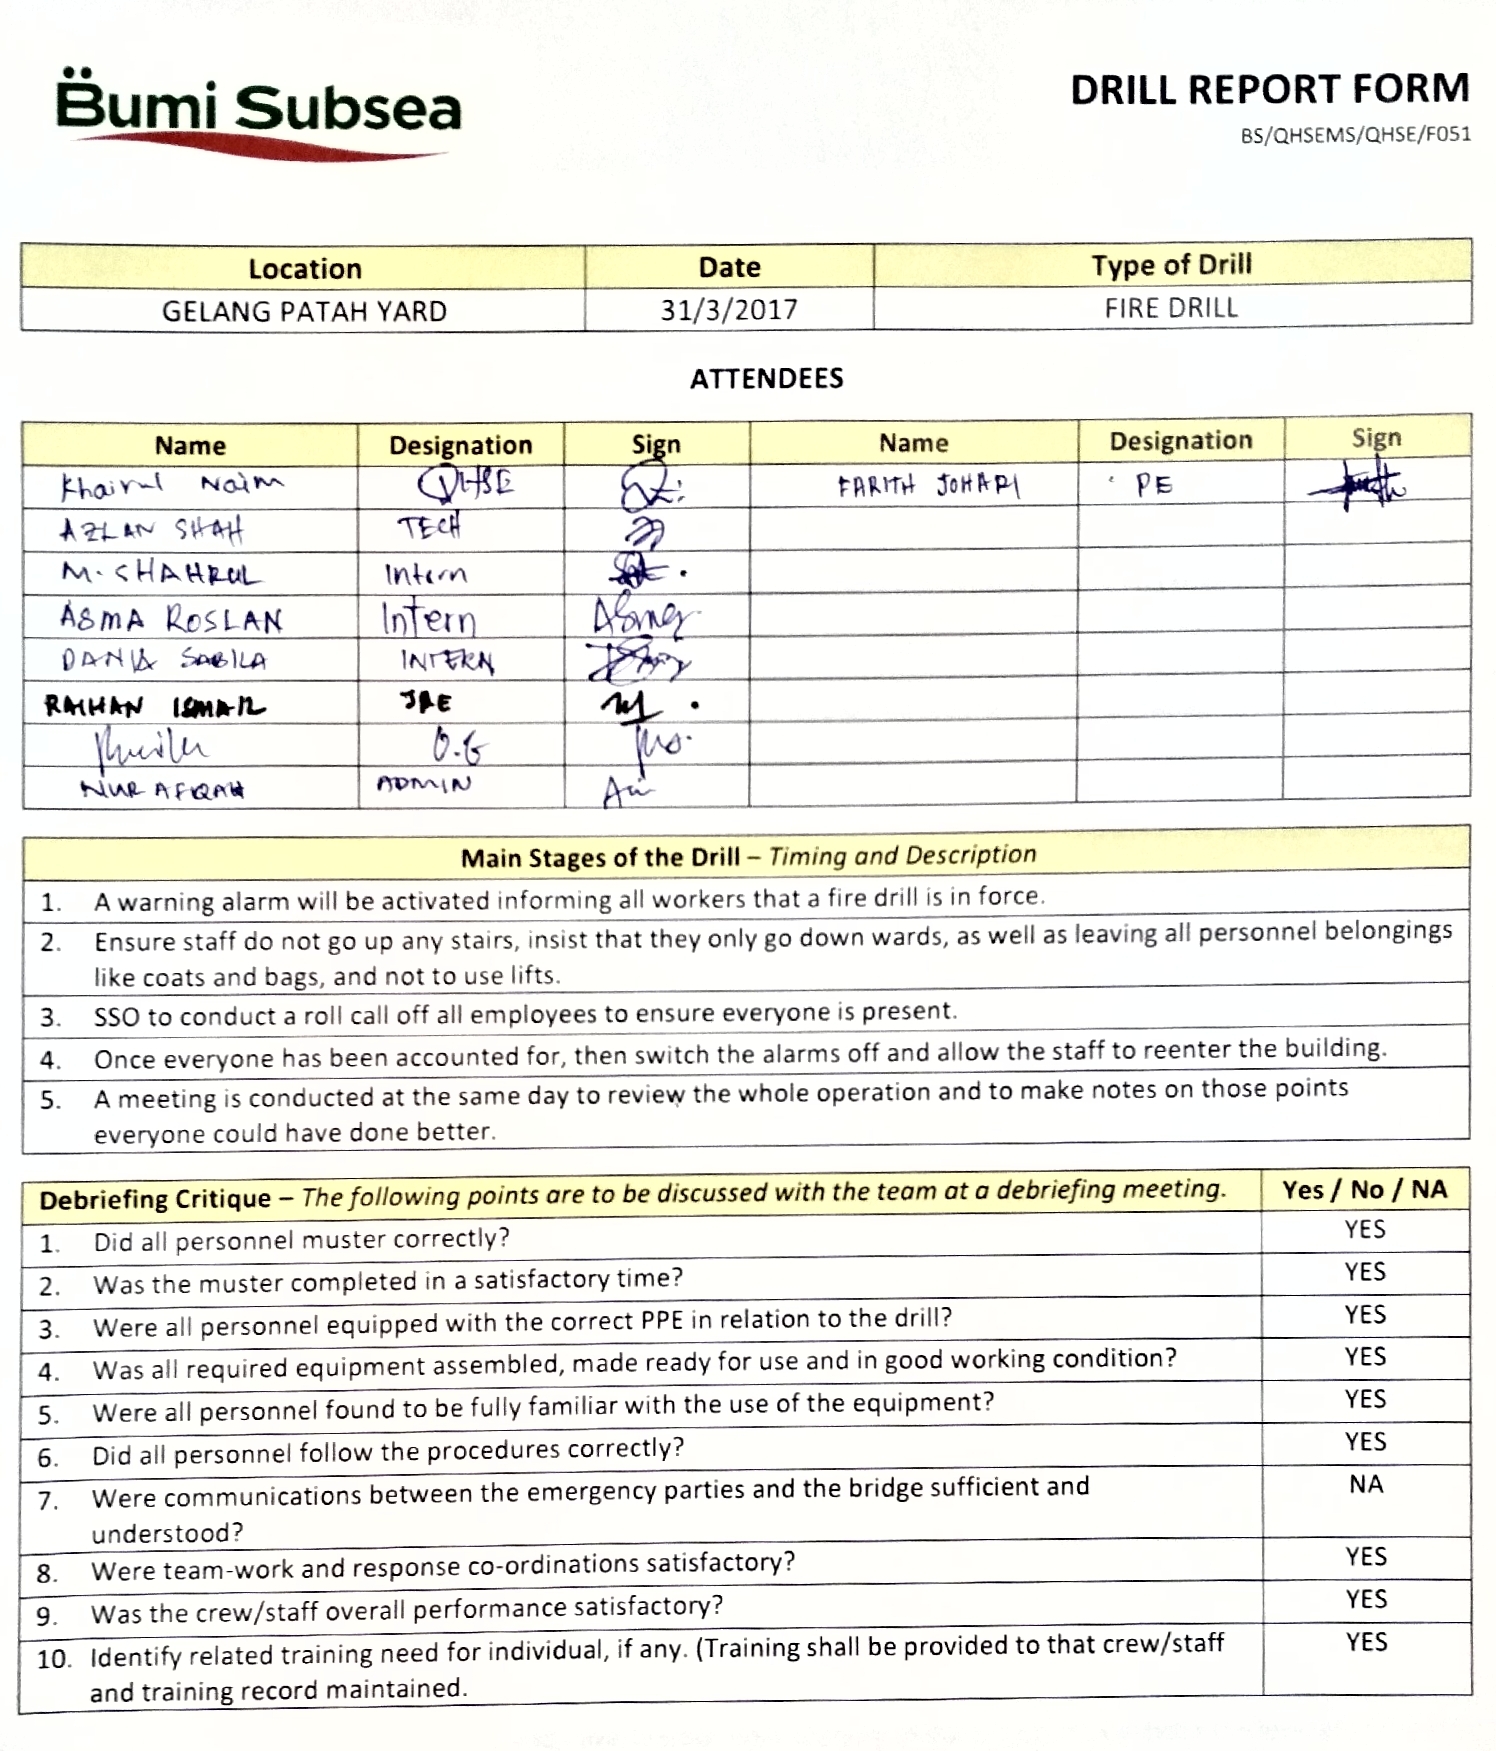 Bumi Subsea
DRILL REPORT FORM
BS/QHSEMS/QHSE/F051
Location Date Type of Drill
GELANG PATAH YARD 31/3/2017 FIRE DRILL
ATTENDEES
Name Designation Sign Name Designation Sign
Khairul Naim QHSE FARITH JOHARI PE
AZLAN SHAH TECH
M. SHAHRUL Intern
ASMA ROSLAN Intern Asma
DANIA SABILA INTERN
RAIHAN ISMAIL
O.G
NUR AFIQAH ADMIN
Main Stages of the Drill – Timing and Description
1. A warning alarm will be activated informing all workers that a fire drill is in force.
2. Ensure staff do not go up any stairs, insist that they only go down wards, as well as leaving all personnel belongings
like coats and bags, and not to use lifts.
3. SSO to conduct a roll call off all employees to ensure everyone is present.
4. Once everyone has been accounted for, then switch the alarms off and allow the staff to reenter the building.
5. A meeting is conducted at the same day to review the whole operation and to make notes on those points
everyone could have done better.
Debriefing Critique – The following points are to be discussed with the team at a debriefing meeting. Yes / No / NA
1. Did all personnel muster correctly? YES
2. Was the muster completed in a satisfactory time? YES
3. Were all personnel equipped with the correct PPE in relation to the drill? YES
4. Was all required equipment assembled, made ready for use and in good working condition? YES
5. Were all personnel found to be fully familiar with the use of the equipment? YES
6. Did all personnel follow the procedures correctly? YES
7. Were communications between the emergency parties and the bridge sufficient and NA
understood?
8. Were team-work and response co-ordinations satisfactory? YES
9. Was the crew/staff overall performance satisfactory? YES
10. Identify related training need for individual, if any. (Training shall be provided to that crew/staff YES
and training record maintained.